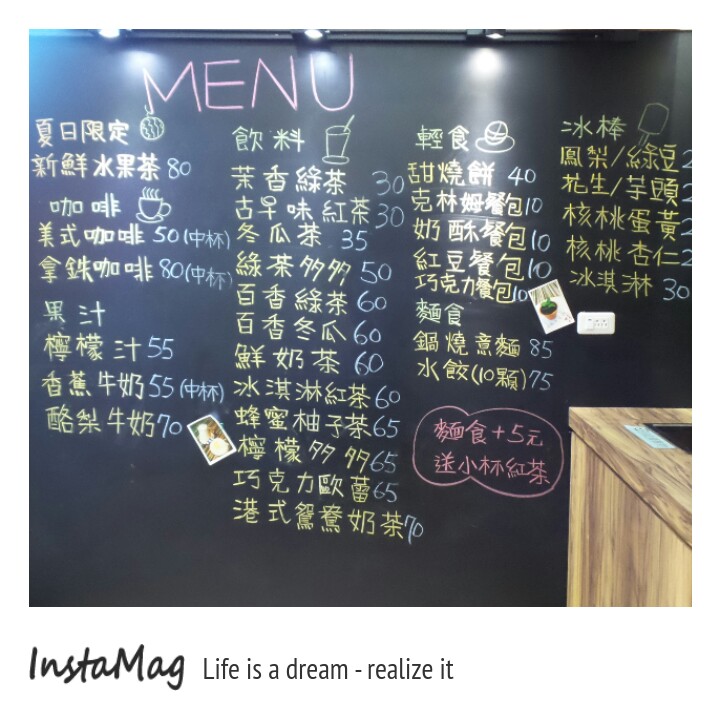 MENU
夏日限定
新鮮水果茶 80
咖啡
美式咖啡 50 (中杯)
拿鉄咖啡 80 (中杯)
果汁
檸檬汁 55
香蕉牛奶 55 (中杯)
酪梨牛奶 70
飲料
茉香綠茶 30
古早味紅茶 30
冬瓜茶 35
綠茶多多 50
百香綠茶 60
百香冬瓜 60
鮮奶茶 60
冰淇淋紅茶 60
蜂蜜柚子茶 65
檸檬多多 65
巧克力歐蕾 65
港式鴛鴦奶茶 70
輕食
甜燒餅 40
克林姆餐包 10
奶酥餐包 10
紅豆餐包 10
巧克力餐包 10
麵食
鍋燒意麵 85
水餃(10顆) 75
麵食+5元
送小杯紅茶
冰棒
鳳梨/綠豆 2
花生/芋頭 2
核桃蛋黃 2
核桃杏仁 2
冰淇淋 30
InstaMag Life is a dream - realize it